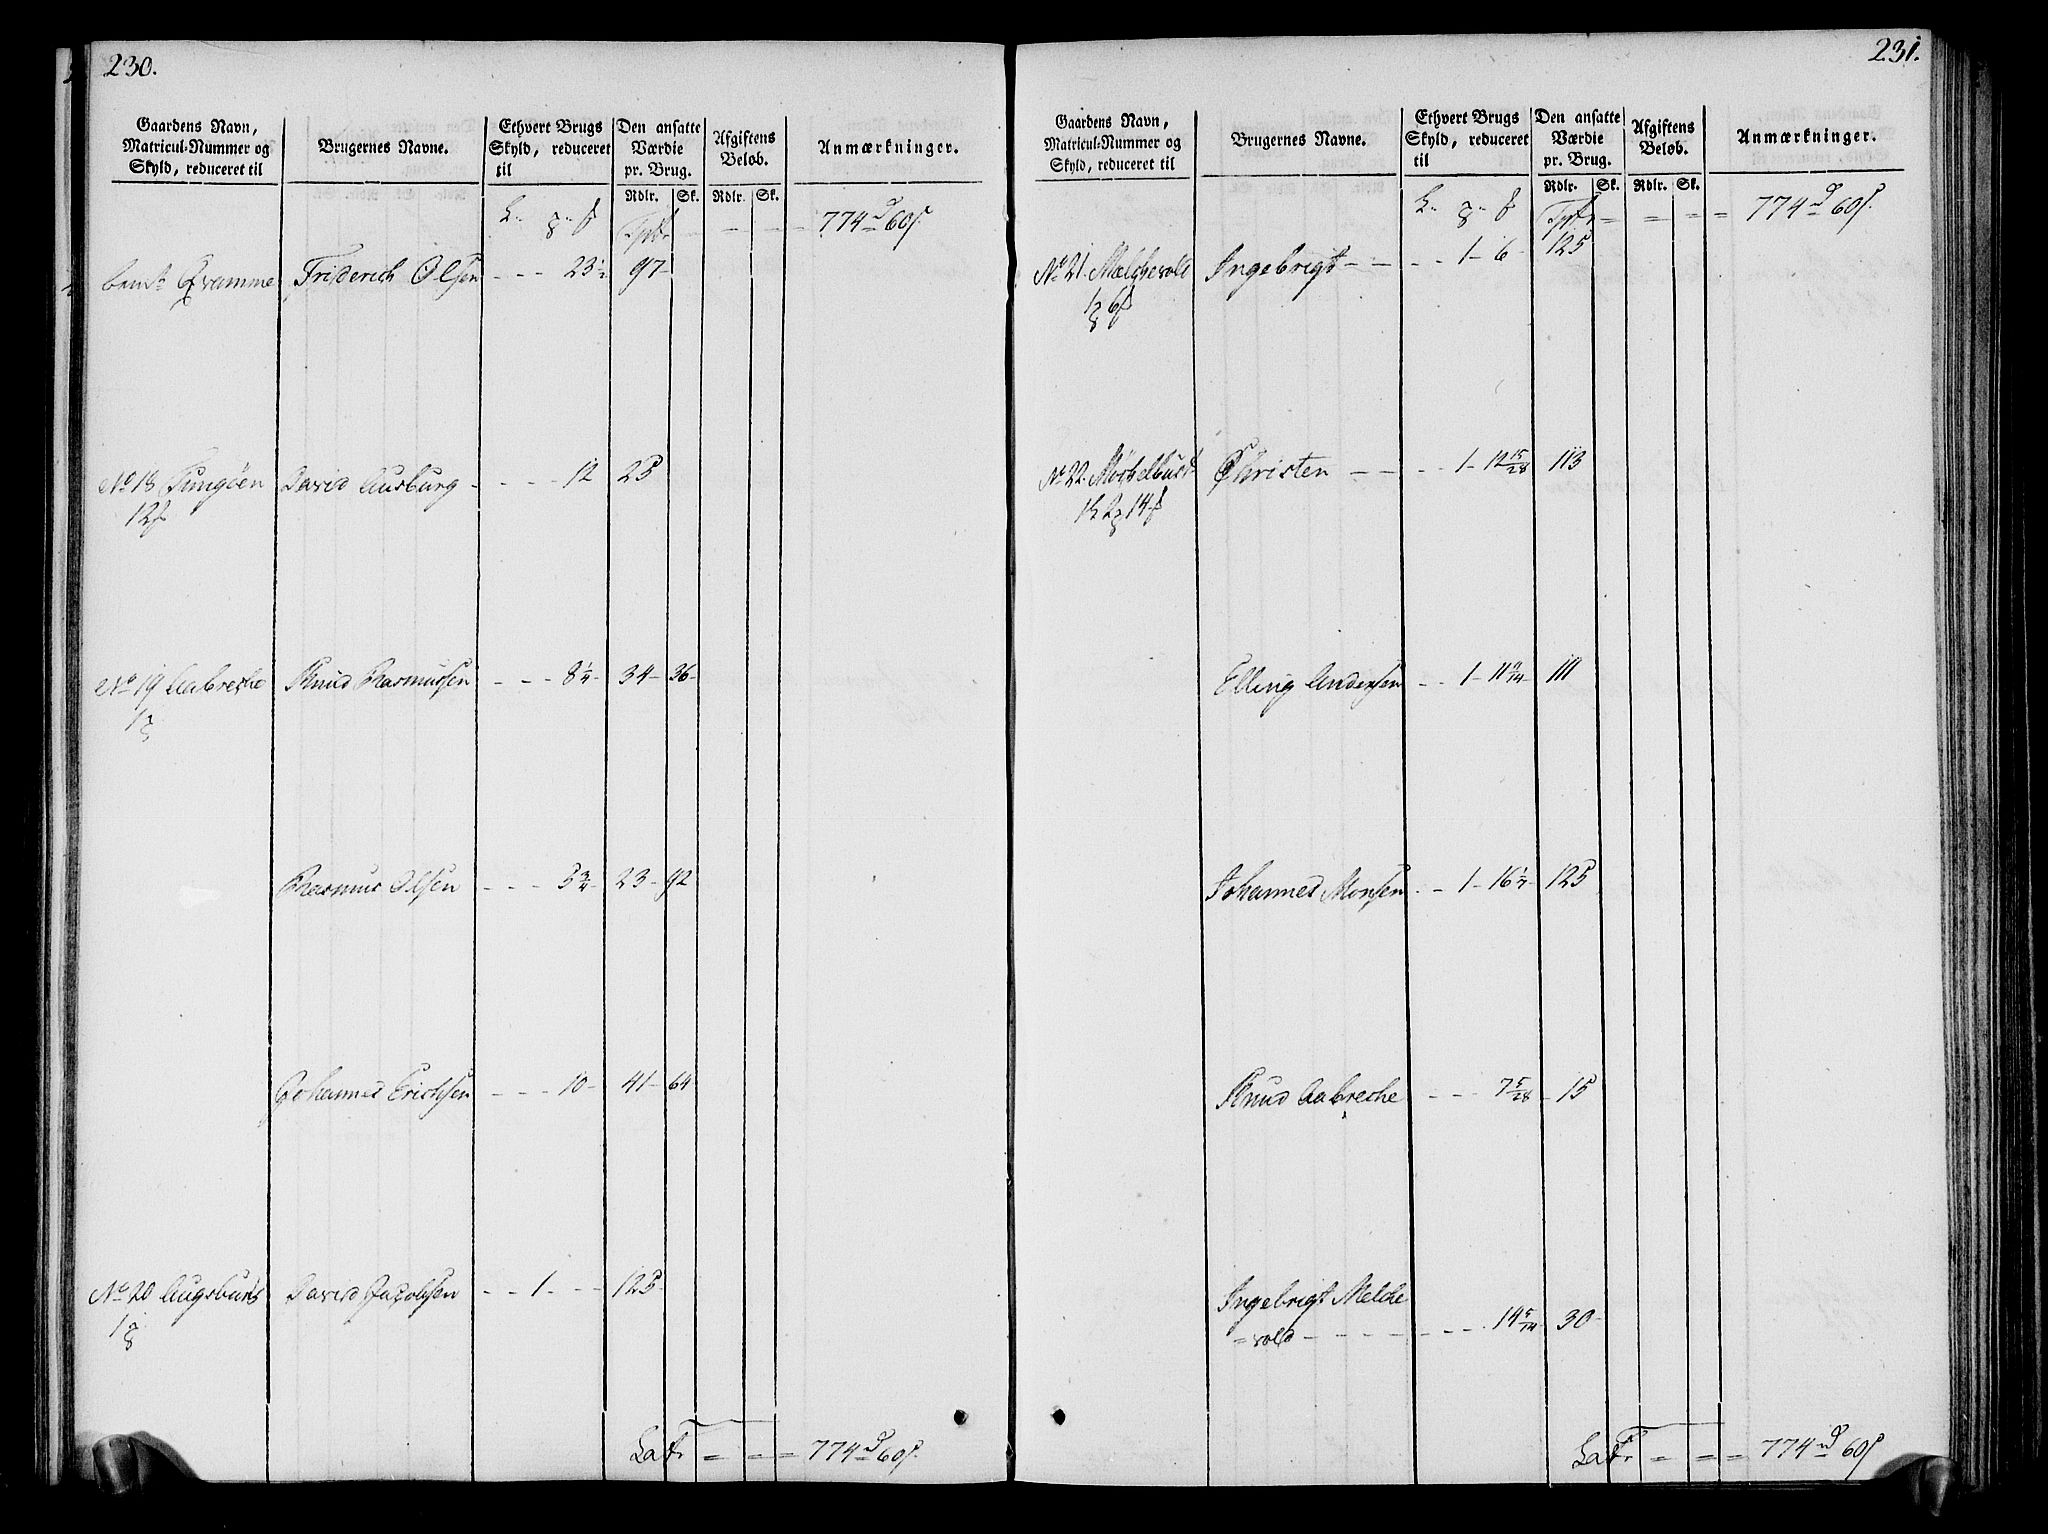 230.
Gaardens Navn, Matricul-Nummer og Skyld, reduceret til | Brugernes Navne. | Ethvert Brugs Skyld, reduceret til | Den ansatte Værdie pr. Brug. Rdlr. Sk. | Afgiftens Beløb. Rdlr. Sk. | Anmærkninger.
Tpt. - - - 774 d 60 s.
Qvamme Friderich Olsen - - - 23 1/2 97
No 18 Tungöen David Ausburg - - - - 12 25
12
No 19 Aabrekke Knud Rasmussen - - - 8 1/4 - 34 - 36 -
1
Rasmus Olsen - - - 5 3/4 23 - 92
Johannes Erichsen - - - 10 - 41 - 64
No 20 Augsburg David Jacobsen - - 1 - - - 125
1
Lat. = = = 774 d 60 s.
231.
Gaardens Navn, Matricul-Nummer og Skyld, reduceret til | Brugernes Navne. | Ethvert Brugs Skyld, reduceret til | Den ansatte Værdie pr. Brug. Rdlr. Sk. | Afgiftens Beløb. Rdlr. Sk. | Anmærkninger.
Tpt. = = = = 774 d 60 s.
No 21 Melchevold Ingebrigt - - - - 1 - 6 - 125
1 6
No 22 Christen - - - - 1 - 12 15/28 113
Elling Andersen - - 1 - 11 9/14 111
Johannes Monsen - - 1 - 16 1/7 - 125
Knud Aabreche - - - 7 5/28 - 15
Ingebrigt Melche
= vold - - - - - - - - 14 5/14 30 -
Lat. = = = 774 d 60 s